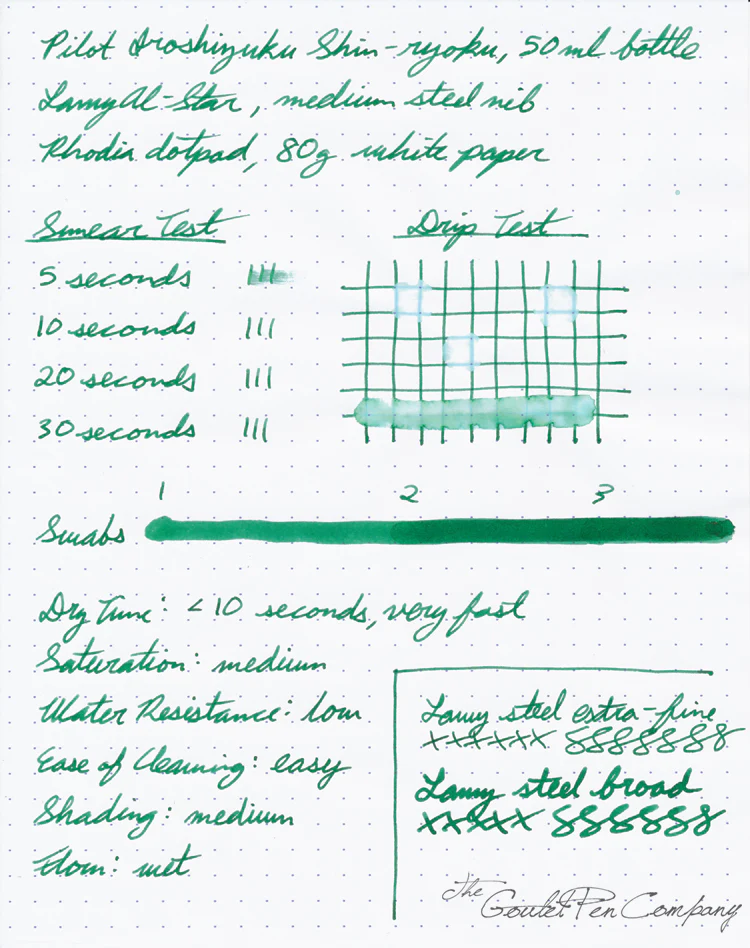 Pilot Iroshizuku Shin-ryoku, 50 ml bottle
Lamy Al-Star, medium steel nib
Rhodia dotpad, 80g white paper
Smear Test
5 seconds
10 seconds
20 seconds
30 seconds
Drip Test
1 2 3
Swabs
Dry Time: <10 seconds, very fast
Saturation: medium
Water Resistance: low
Ease of Cleaning: easy
Shading: medium
Flow: wet
Lamy steel extra-fine
xxxxxx 8888888
Lamy steel broad
xxxxx 888888
The Goulet Pen Company